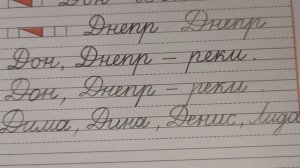 Днепр Днепр
Дон, Днепр – реки.
Дон, Днепр – реки.
Дима, Дина, Денис, Лида